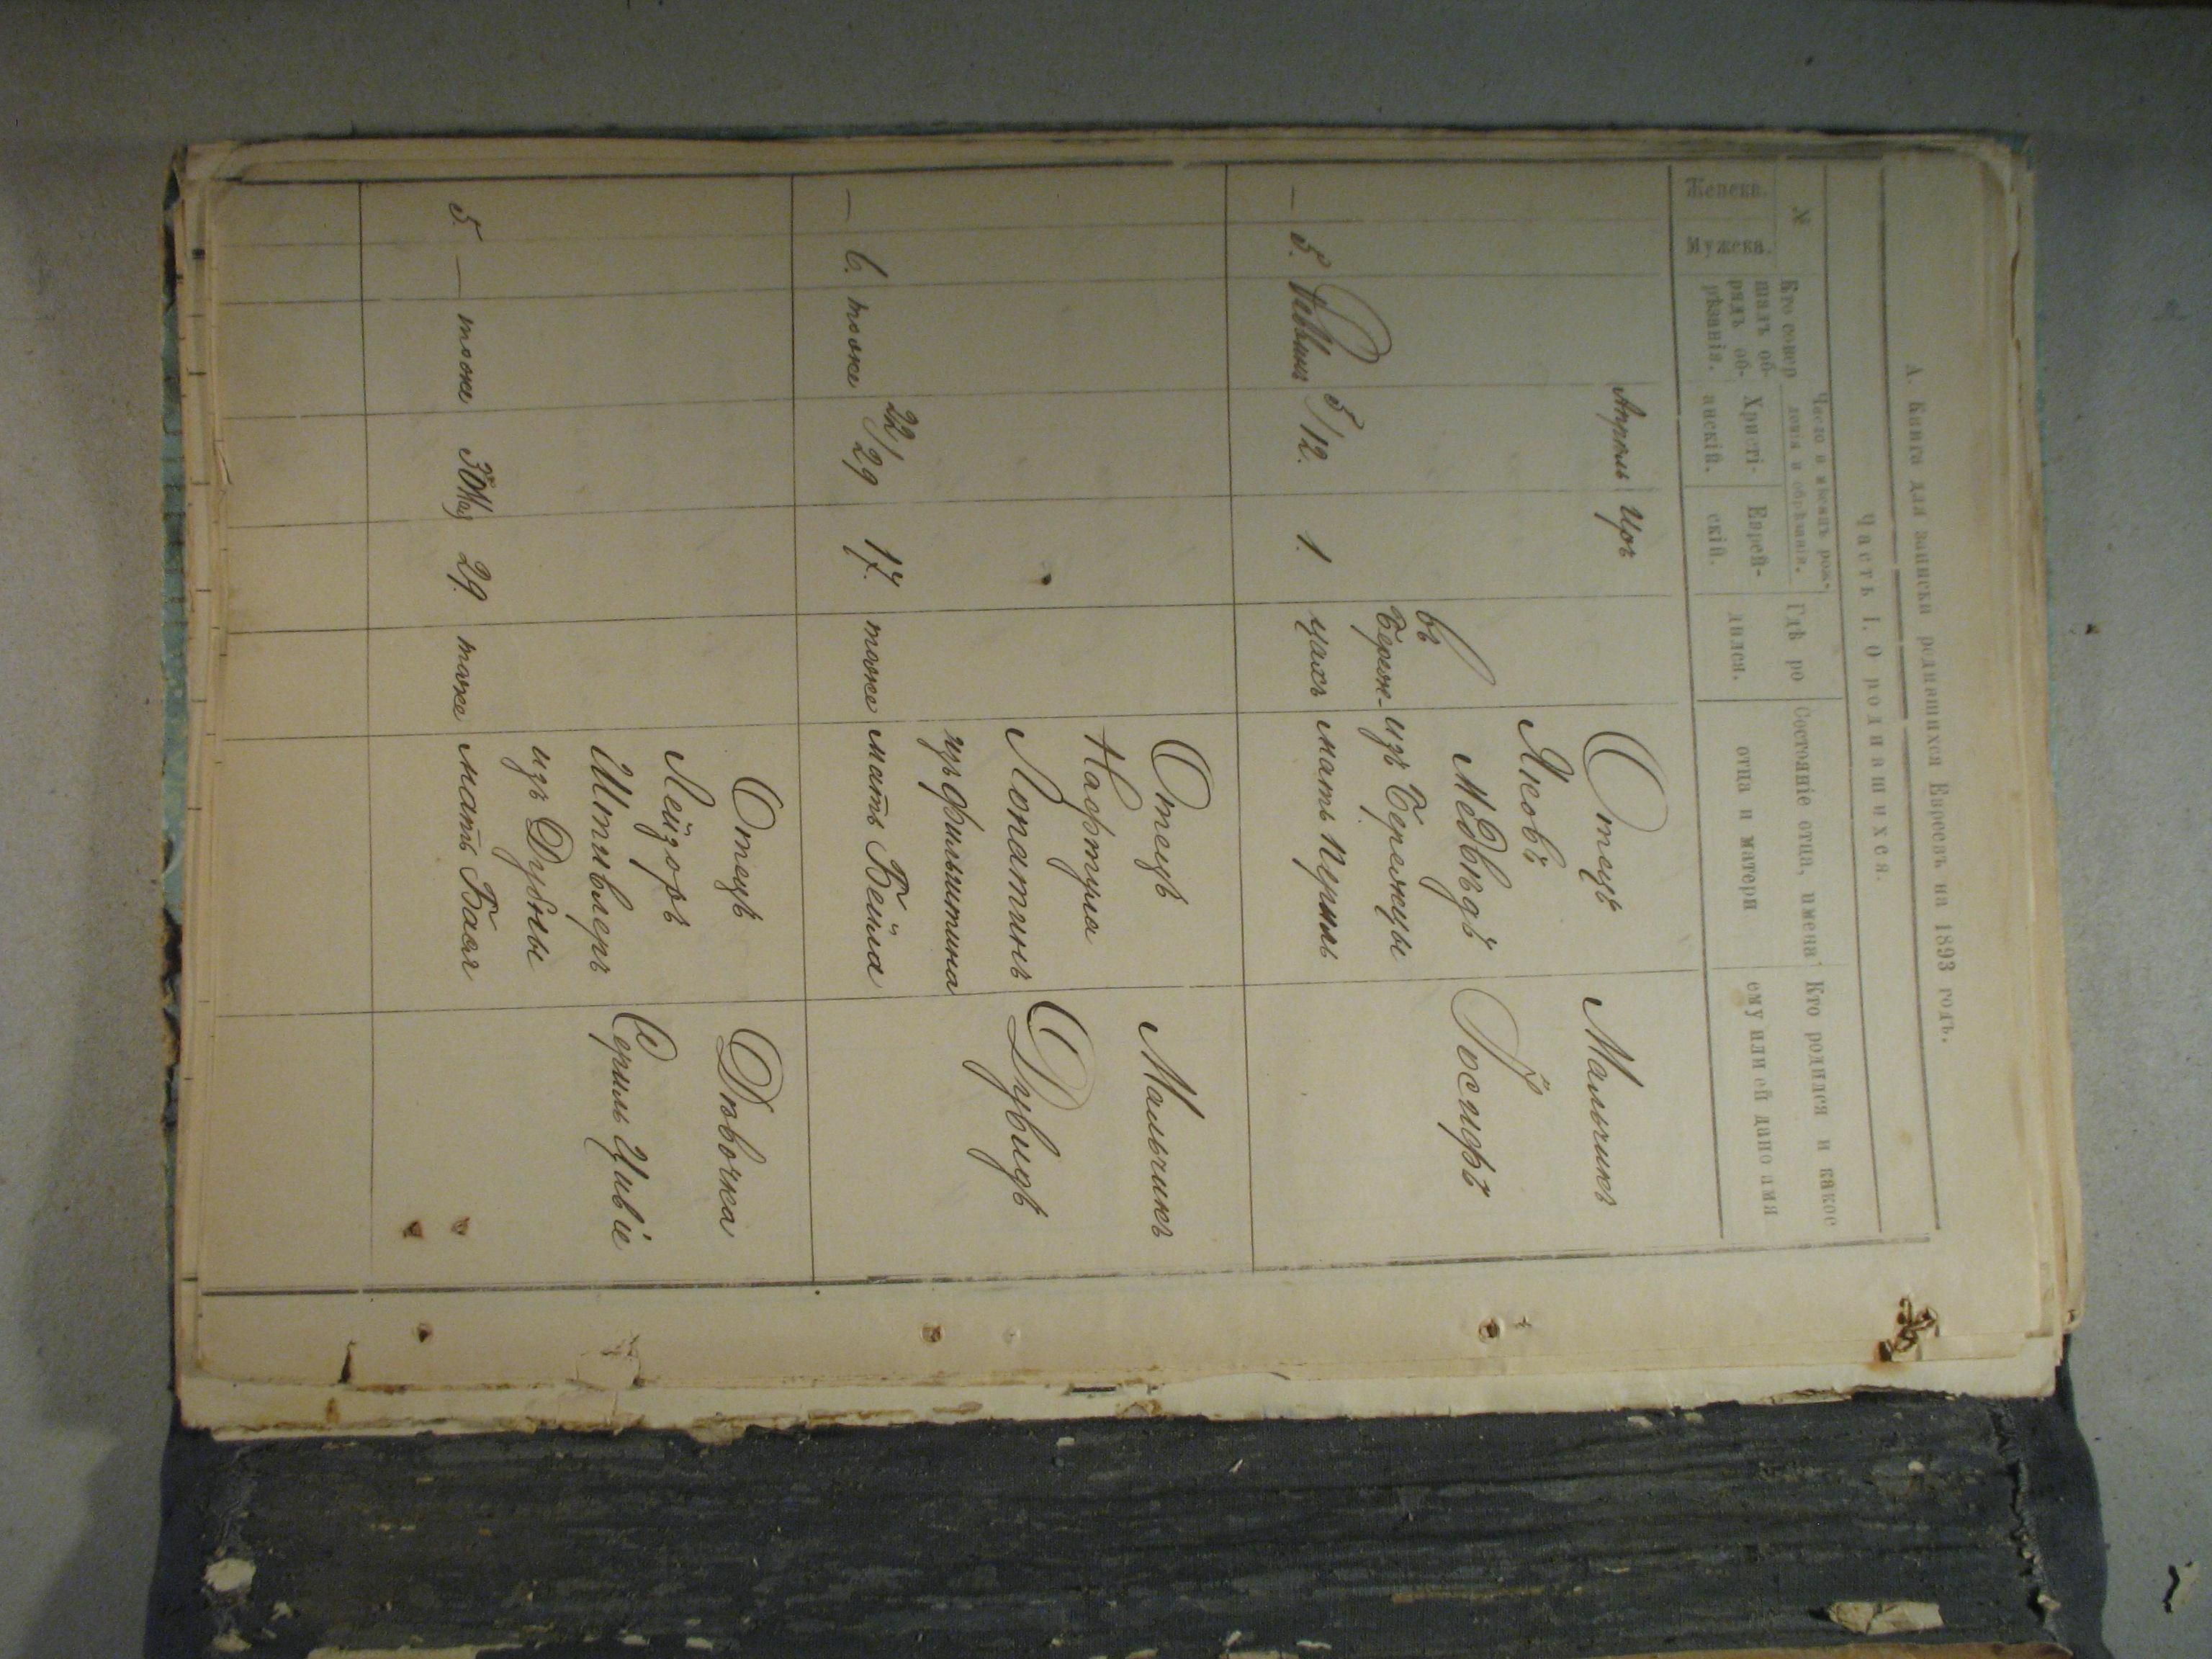 А. Книга для записки родившихся Евреевъ на 1893 годъ.
Часть I. О родившихся.
№
Женска.
Мужска.
Кто совер
шалъ об-
рядъ об-
рѣзанія.
Число и мѣсяцъ рож-
денія и обрѣзанія.
Христі-
анскій.
Еврей-
скій.
Гдѣ ро
дился.
Состояніе отца, имена
отца и матери
Кто родился и какое
ему или ей дано имя
Апрѣль
—
5.
5/12.
1.
въ
Береж-
цахъ
Отецъ
Яковъ
Медвѣдъ
изъ Бережцы
мать Перль
Мальчикъ
Іосифъ
—
6.
тоже
22/29
17.
тоже
Отецъ
Нафтула
Лопатинъ
изъ Фильштина
мать Бейла
Мальчикъ
Дувидъ
5.
—
тоже
30 Мая
29.
тоже
Отецъ
Лейзоръ
Штивлеръ
изъ Дубны
мать Бася
Дѣвочка
Сериль Цивіе